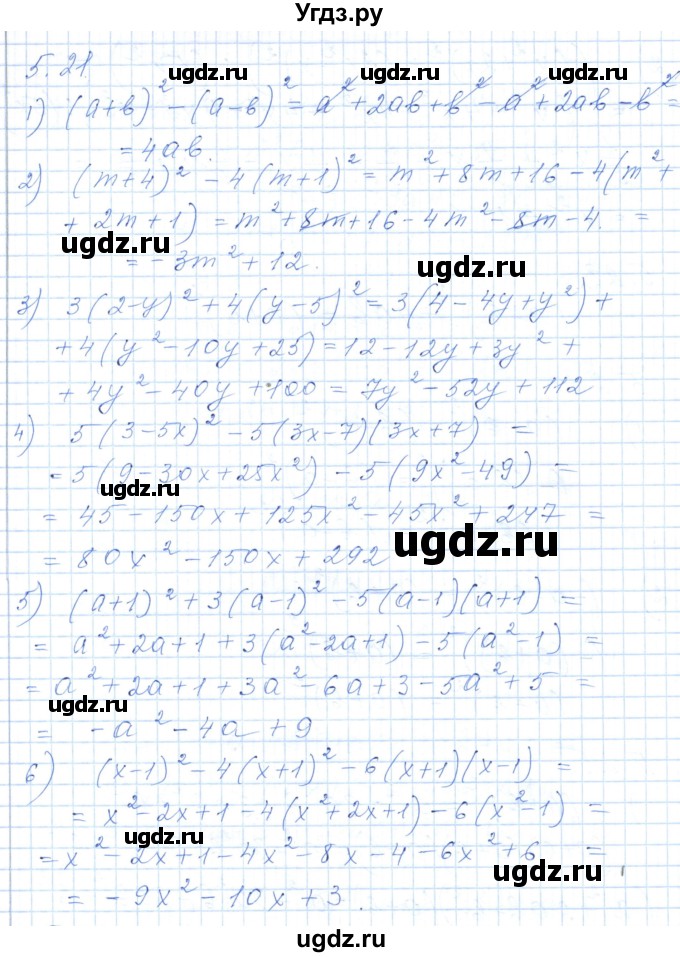 Угдз.ру
5.21
ugdz.ru ugdz.ru
1) (a+b)² - (a-b)² = a² + 2ab + b² - a² + 2ab - b² =
= 4ab.
2) (m+4)² - 4(m+1)² = m² + 8m + 16 - 4(m² +
+ 2m + 1) = m² + 8m + 16 - 4m² - 8m - 4. =
ugdz.ru ugdz.ru
= -3m² + 12.
3) 3(2-y)² + 4(y-5)² = 3(4 - 4y + y²) +
+ 4(y² - 10y + 25) = 12 - 12y + 3y² +
+ 4y² - 40y + 100 = 7y² - 52y + 112
4) 5(3-5x)² - 5(3x-7)(3x+7) =
= 5(9 - 30x + 25x²) - 5(9x² - 49) =
ugdz.ru
= 45 - 150x + 125x² - 45x² + 247 =
= 80x² - 150x + 292
ugdz.ru
5) (a+1)² + 3(a-1)² - 5(a-1)(a+1) =
= a² + 2a + 1 + 3(a² - 2a + 1) - 5(a² - 1) =
ugdz.ru ugdz.ru
= a² + 2a + 1 + 3a² - 6a + 3 - 5a² + 5 =
ugdz.ru
= -a² - 4a + 9
6) (x-1)² - 4(x+1)² - 6(x+1)(x-1) =
ugdz.ru
= x² - 2x + 1 - 4(x² + 2x + 1) - 6(x² - 1) =
ugdz.ru
= x² - 2x + 1 - 4x² - 8x - 4 - 6x² + 6 =
ugdz.ru
= -9x² - 10x + 3.
ugdz.ru